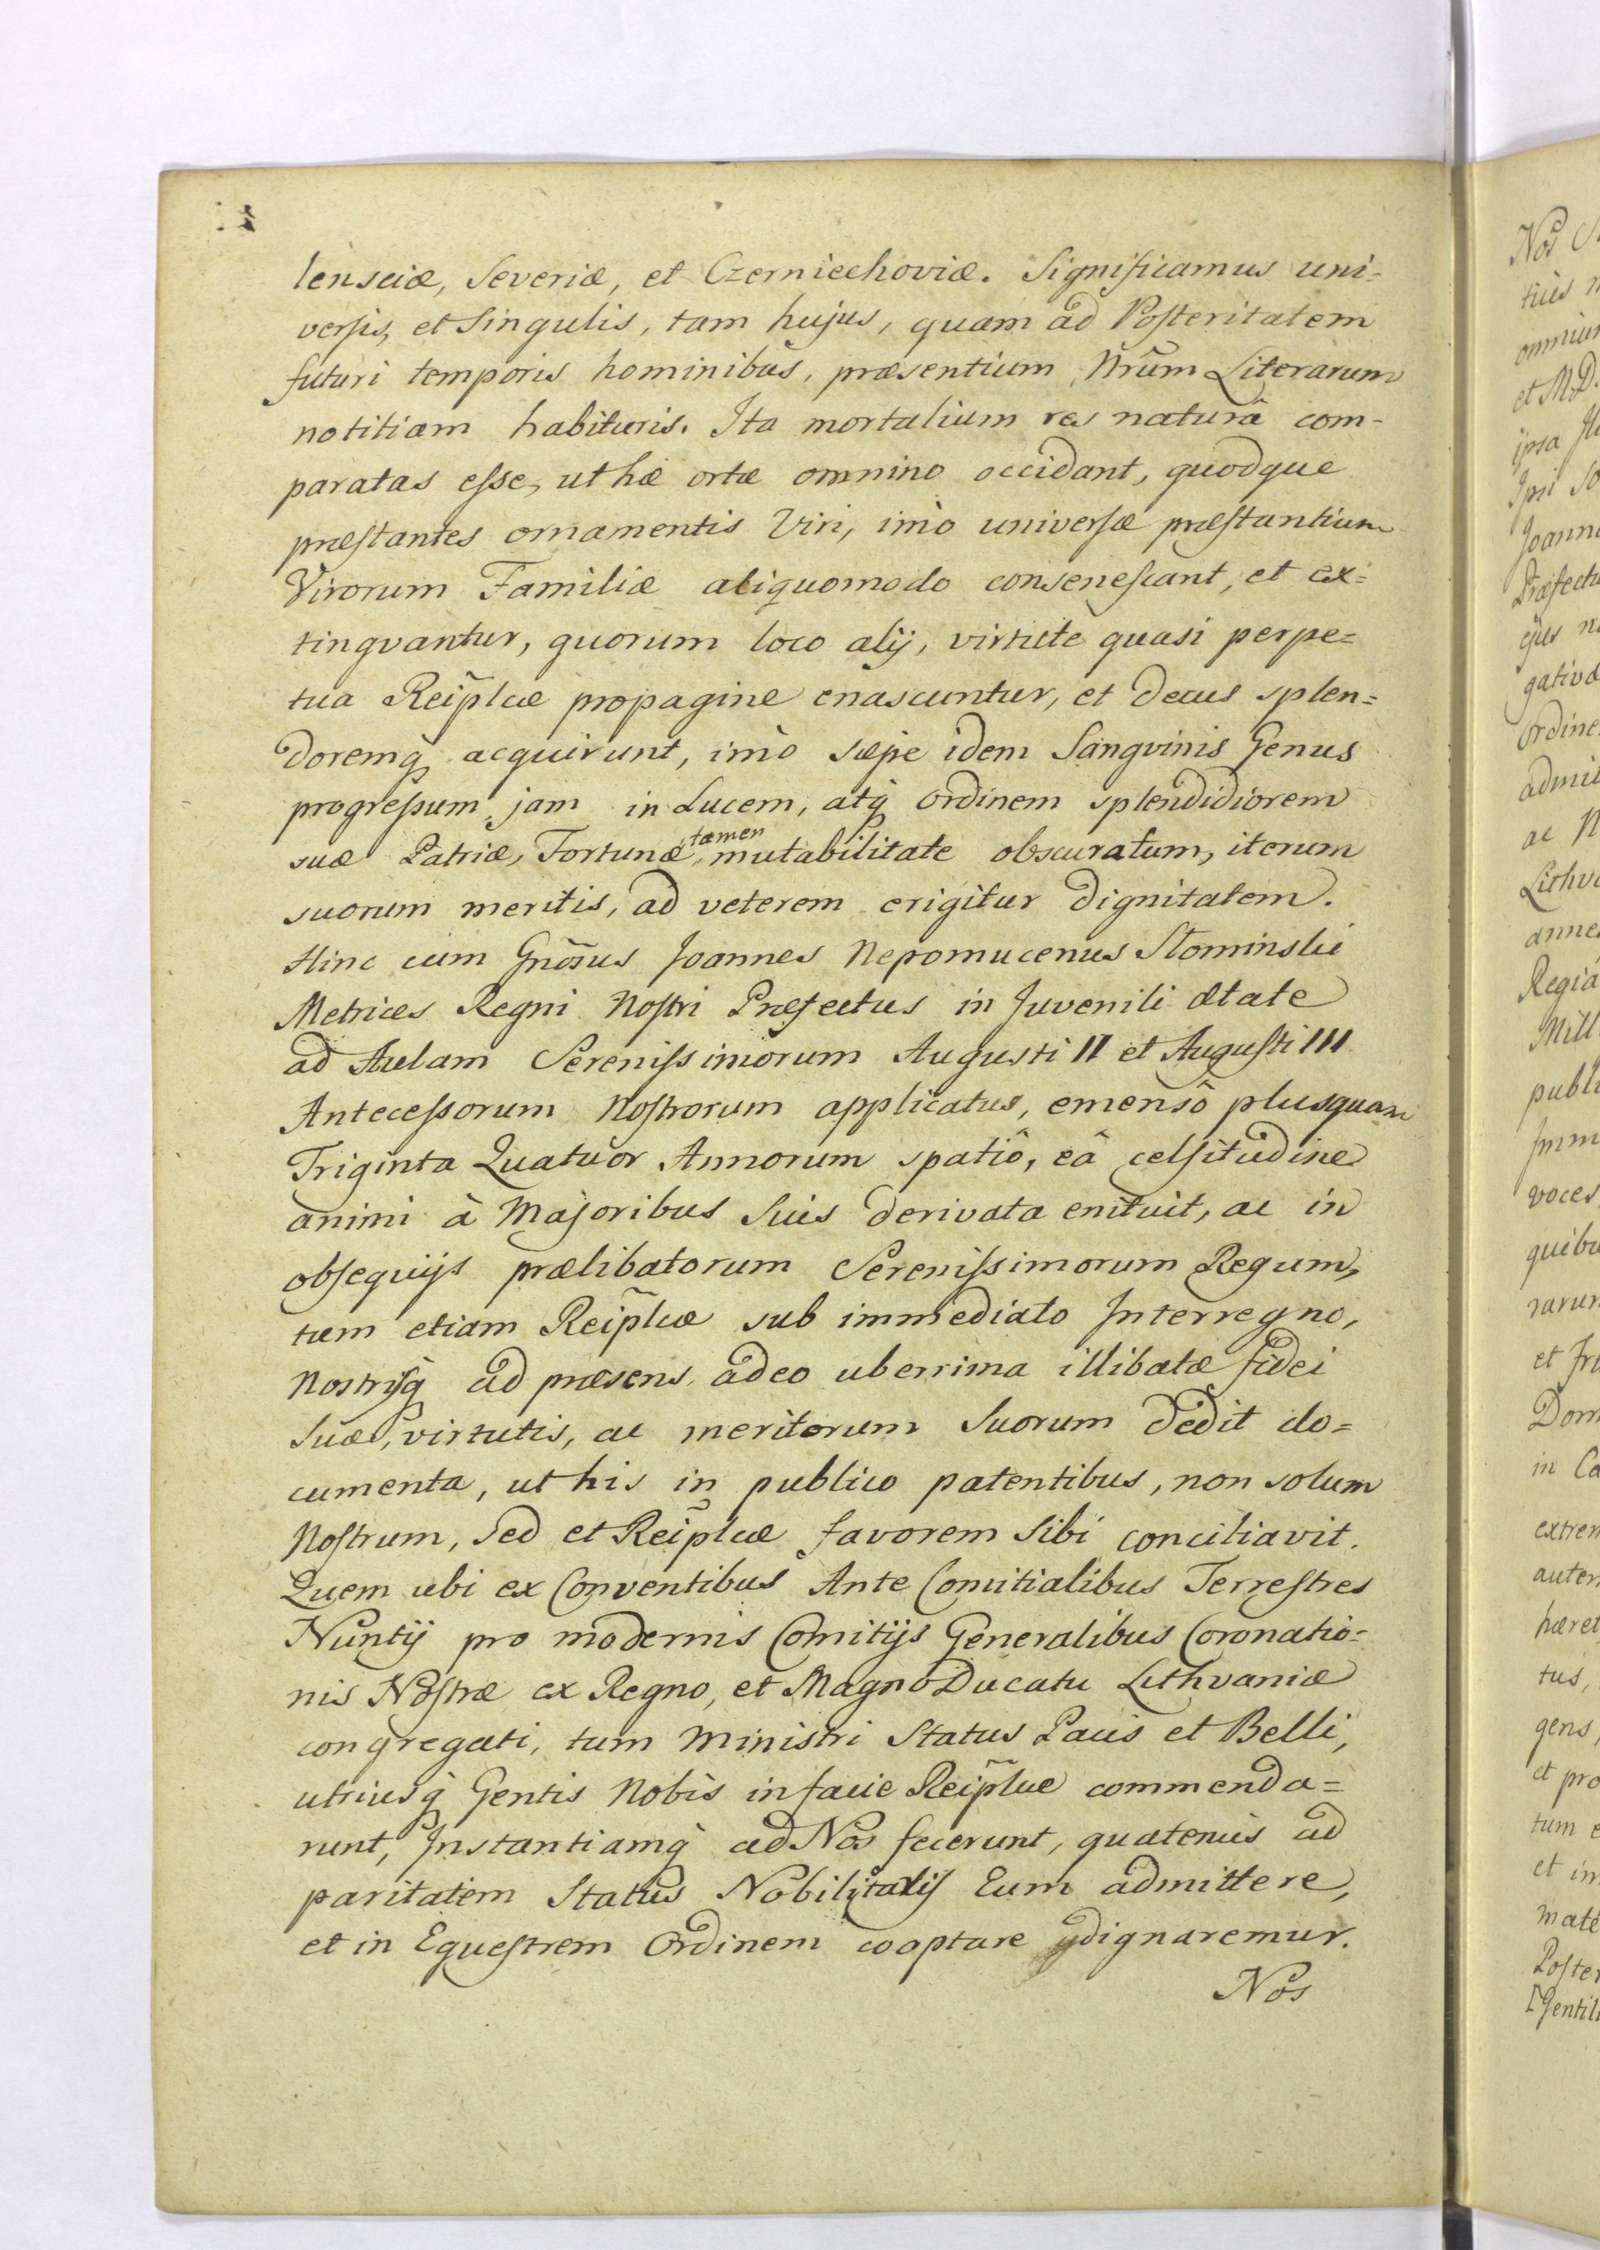 lensciæ, Severiæ, et Czerniechoviæ. Significamus uni=
versis, et Singulis, tam hujus, quam ad Posteritatem
futuri temporis hominibus, præsentium Nrũm Literarum
notitiam habituris. Ita mortalium res naturâ com-
paratas esse, ut hæ ortæ omnino occidant, quodque
præstantes ornamentis Viri, imò universæ præstantium
Virorum Familiæ aliquomodo consenescant, et ex=
tingvantur, quorum loco alij, virtute quasi perpe=
tua Reip̃lcæ propagine enascuntur, et decus splen=
doremq̨ acquirunt, imò sæpe idem Sangvinis Genus
progressum jam in Lucem, atq̨ ordinem splendidiorem
suæ Patriæ, Fortunæ tamen mutabilitate obscuratum, iterum
suorum meritis, ad veterem erigitur dignitatem.
Hinc cum Gnõsus Joannes Nepomucenus Słominski
Metrices Regni Nostri Præfectus in Juvenili ætate
ad Aulam Serenissimorum Augusti II et Augusti III
Antecessorum Nostrorum applicatus, emensô plusquam
Triginta Quatuor Annorum spatiô, eâ celsitudine
animi à Majoribus Suis derivata enituit, ac in
obsequijs prælibatorum Serenissimorum Regum,
tum etiam Reip̃lcæ sub immediato Interregno,
Nostrisq̨ ad præsens adeo uberrima illibatæ fidei
Suæ, virtutis, ac meritorum Suorum dedit do=
cumenta, ut his in publico patentibus, non solum
Nostrum, Sed et Reip̃lcæ favorem Sibi conciliavit.
Quem ubi ex Conventibus Ante Comitialibus Terrestres
Nuntij pro modernis Comitijs Generalibus Coronatio=
nis Nostræ ex Regno, et Magno Ducatu Lithvaniæ
congregati, tum Ministri Status Pacis et Belli,
utriusq̨ Gentis Nobis in facie Reip̃lcæ commenda=
runt, Instantiamq̨ ad Nos fecerunt, quatenus ad
paritatem Status Nobilitatis Eum admittere,
et in Equestrem Ordinem cooptare dignaremur.
Nos